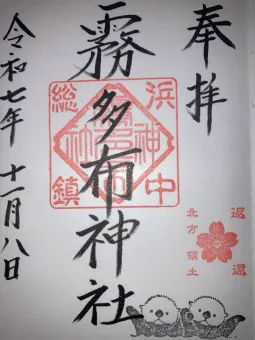 奉拝
霧多布神社
浜中
総鎮
返還
北方領土
令和七年 十一月八日